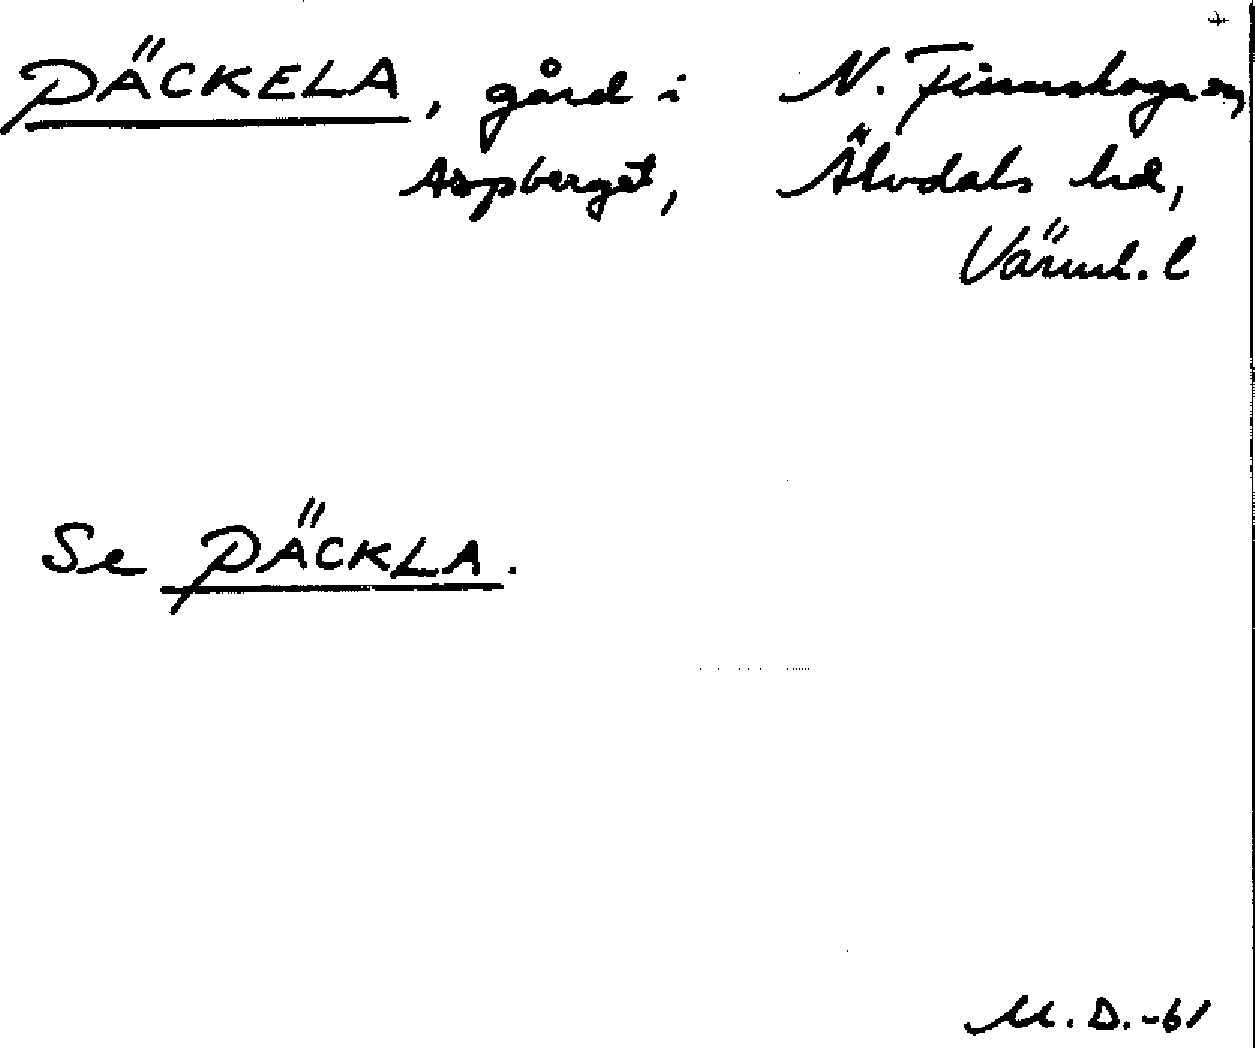 PÄCKELA, gård i N. Finnskoga sn,
Aspberget, Älvdals hd,
Värml. l
Se PÄCKLA.
M. D. -61